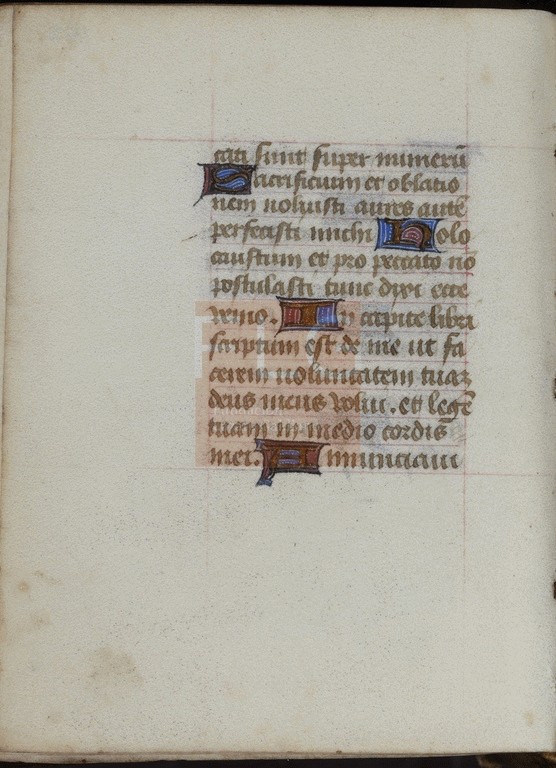 cati sunt super numerū
Sacrificium et oblatio
nem noluisti aures autē
perfecisti michi Holo
caustum et pro peccato nō
postulasti tunc dixi ecce
venio. In capite libri
scriptum est de me ut fa
cerem voluntatem tuaꝫ
deus meus volui. et legē
tuam in medio cordis
mei. Annunciaui